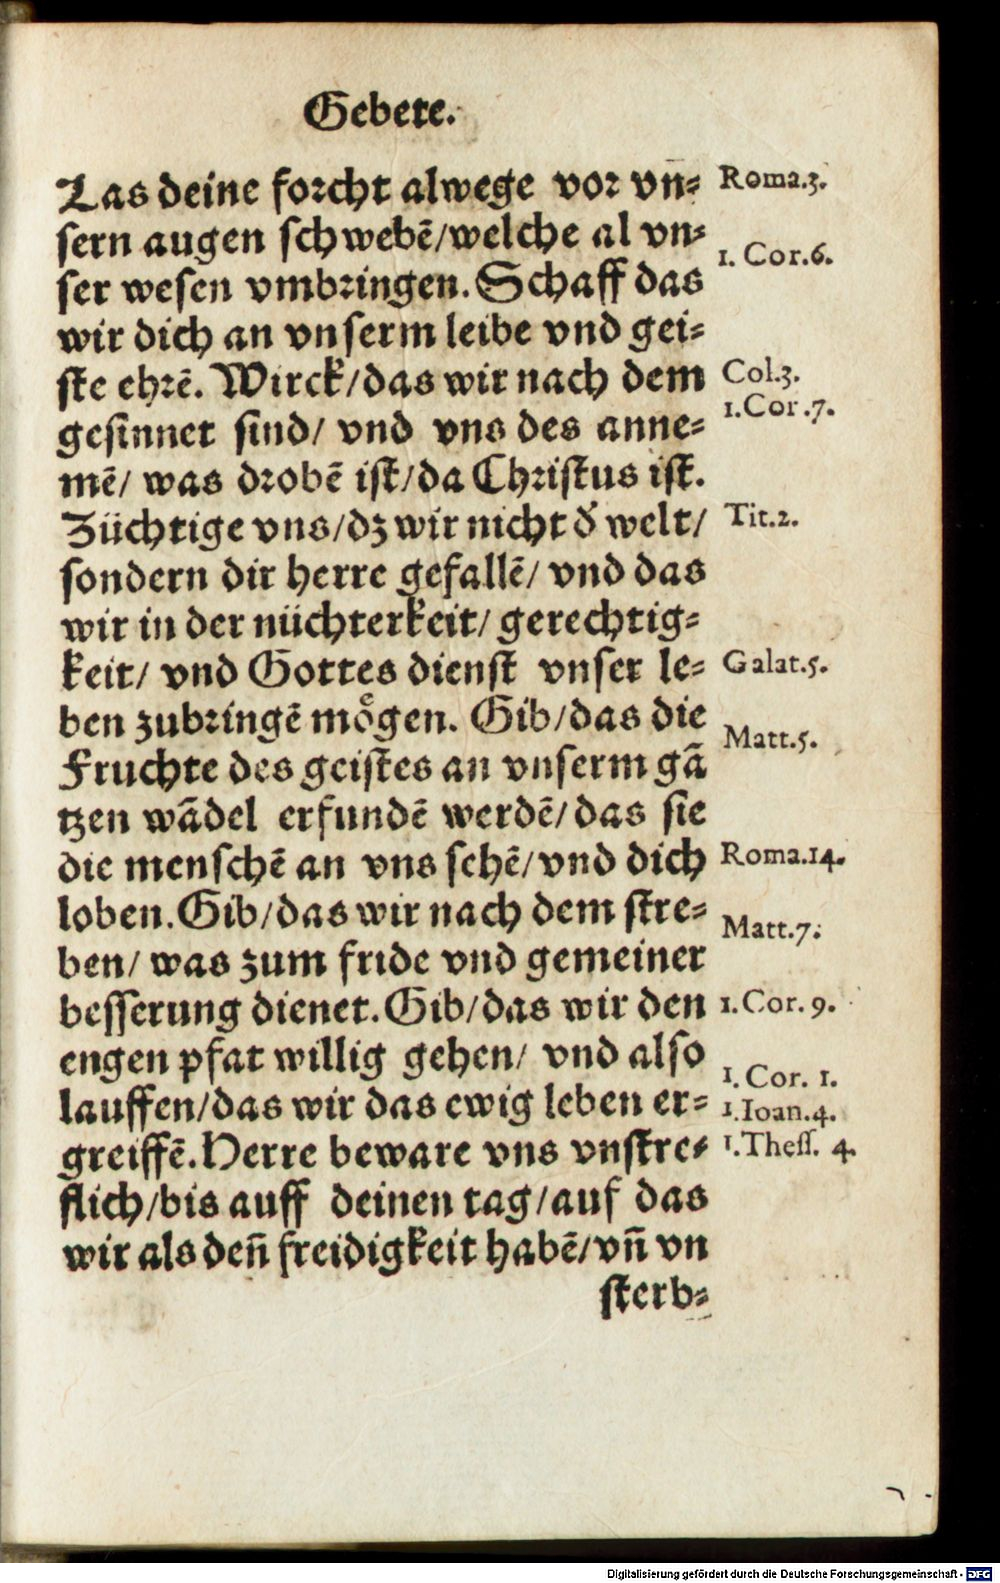 Gebete.
Las deine forcht alwege vor vn⸗
sern augen schwebẽ/welche al vn⸗
ser wesen vmbringen. Schaff das
wir dich an vnserm leibe vnd gei⸗
ste ehrẽ. Wirck/das wir nach dem
gesinnet sind/ vnd vns des anne⸗
mẽ/ was drobẽ ist/da Christus ist.
Züchtige vns/dz wir nicht d̓ welt/
sondern dir herre gefallẽ/ vnd das
wir in der nüchterkeit/ gerechtig⸗
keit/ vnd Gottes dienst vnser le⸗
ben zubringẽ moͤgen. Gib/das die
Fruchte des geistes an vnserm gã
tzen wãdel erfundẽ werdẽ/das sie
die menschẽ an vns sehẽ/vnd dich
loben. Gib/das wir nach dem stre⸗
ben/ was zum fride vnd gemeiner
besserung dienet. Gib/das wir den
engen pfat willig gehen/ vnd also
lauffen/das wir das ewig leben er⸗
greiffẽ. Herre beware vns vnstre⸗
flich/bis auff deinen tag/auf das
wir als deñ freidigkeit habẽ/vñ vn
sterb⸗
Roma.3.
1. Cor.6.
Col.3.
1.Cor.7.
Tit.2.
Galat.5.
Matt.5.
Roma.14.
Matt.7.
1.Cor. 9.
1. Cor. 1.
1.Ioan.4.
1.Thess. 4.
Digitalisierung gefördert durch die Deutsche Forschungsgemeinschaft - DFG